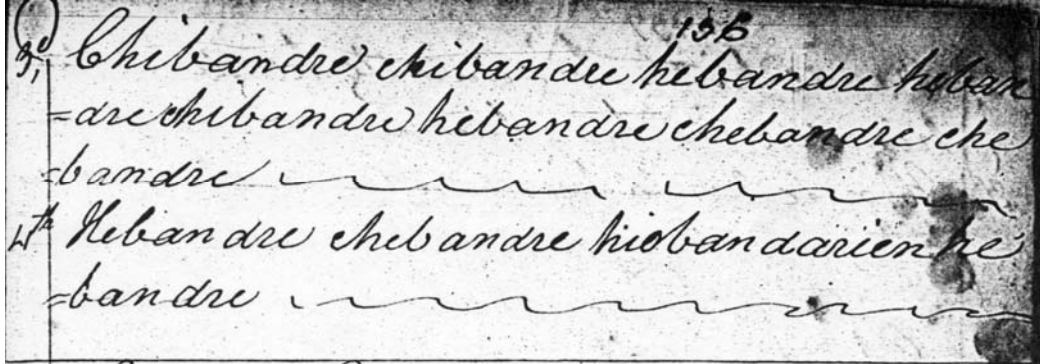 136
3d, Chibandre chibandre hebandre heban
=dre chibandre hebandre chebandre che
=bandre
4th Hebandre chebandre hiobandarien he
=bandre